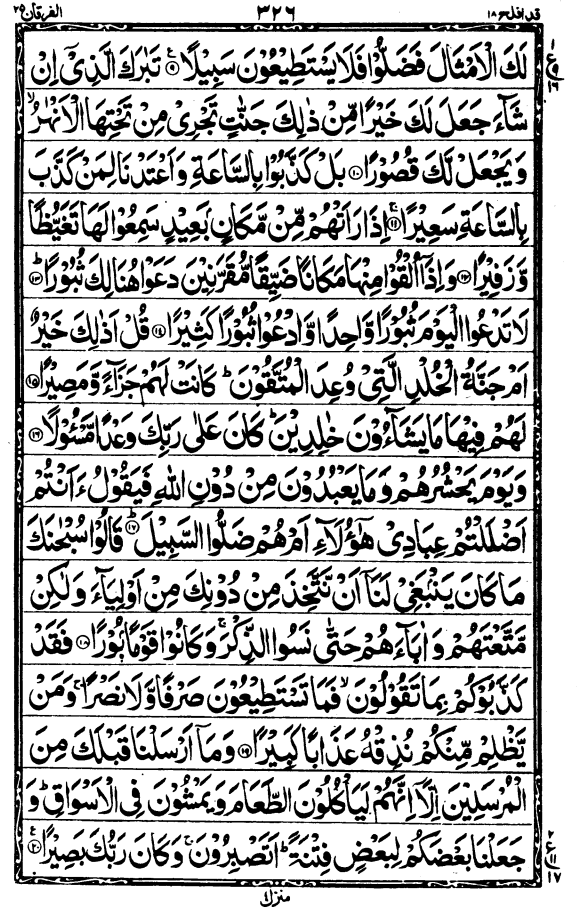 قد افلح ۱۸ ۳۲۶ الفرقان ۲۵
لَكَ الْاَمْثَالَ فَضَلُّوْا فَلَا يَسْتَطِيْعُوْنَ سَبِيْلًا ۹ تَبٰرَكَ الَّذِىْۤ اِنْ
شَآءَ جَعَلَ لَكَ خَيْرًا مِّنْ ذٰلِكَ جَنّٰتٍ تَجْرِىْ مِنْ تَحْتِهَا الْاَنْهٰرُ ۙ
وَ يَجْعَلْ لَّكَ قُصُوْرًا ۱۰ بَلْ كَذَّبُوْا بِالسَّاعَةِ وَ اَعْتَدْنَا لِمَنْ كَذَّبَ
بِالسَّاعَةِ سَعِيْرًا ۱۱ اِذَا رَاَتْهُمْ مِّنْ مَّكَانٍۭ بَعِيْدٍ سَمِعُوْا لَهَا تَغَيُّظًا
وَّ زَفِيْرًا ۱۲ وَ اِذَاۤ اُلْقُوْا مِنْهَا مَكَانًا ضَيِّقًا مُّقَرَّنِيْنَ دَعَوْا هُنَالِكَ ثُبُوْرًا ۱۳
لَا تَدْعُوا الْيَوْمَ ثُبُوْرًا وَّاحِدًا وَّ ادْعُوْا ثُبُوْرًا كَثِيْرًا ۱۴ قُلْ اَذٰلِكَ خَيْرٌ
اَمْ جَنَّةُ الْخُلْدِ الَّتِىْ وُعِدَ الْمُتَّقُوْنَ ؕ كَانَتْ لَهُمْ جَزَآءً وَّ مَصِيْرًا ۱۵
لَهُمْ فِيْهَا مَا يَشَآءُوْنَ خٰلِدِيْنَ ؕ كَانَ عَلٰى رَبِّكَ وَعْدًا مَّسْـُٔوْلًا ۱۶
وَ يَوْمَ يَحْشُرُهُمْ وَ مَا يَعْبُدُوْنَ مِنْ دُوْنِ اللّٰهِ فَيَقُوْلُ ءَاَنْتُمْ
اَضْلَلْتُمْ عِبَادِىْ هٰٓؤُلَآءِ اَمْ هُمْ ضَلُّوا السَّبِيْلَ ؕ ۱۷ قَالُوْا سُبْحٰنَكَ
مَا كَانَ يَنْۢبَغِىْ لَنَاۤ اَنْ نَّتَّخِذَ مِنْ دُوْنِكَ مِنْ اَوْلِيَآءَ وَ لٰكِنْ
مَّتَّعْتَهُمْ وَ اٰبَآءَهُمْ حَتّٰى نَسُوا الذِّكْرَ ۚ وَ كَانُوْا قَوْمًۢا بُوْرًا ۱۸ فَقَدْ
كَذَّبُوْكُمْ بِمَا تَقُوْلُوْنَ ۙ فَمَا تَسْتَطِيْعُوْنَ صَرْفًا وَّ لَا نَصْرًا ۚ وَ مَنْ
يَّظْلِمْ مِّنْكُمْ نُذِقْهُ عَذَابًا كَبِيْرًا ۱۹ وَ مَاۤ اَرْسَلْنَا قَبْلَكَ مِنَ
الْمُرْسَلِيْنَ اِلَّاۤ اِنَّهُمْ لَيَاْكُلُوْنَ الطَّعَامَ وَ يَمْشُوْنَ فِى الْاَسْوَاقِ ؕ وَ
جَعَلْنَا بَعْضَكُمْ لِبَعْضٍ فِتْنَةً ؕ اَتَصْبِرُوْنَ ۚ وَ كَانَ رَبُّكَ بَصِيْرًا ۲۰
منزل